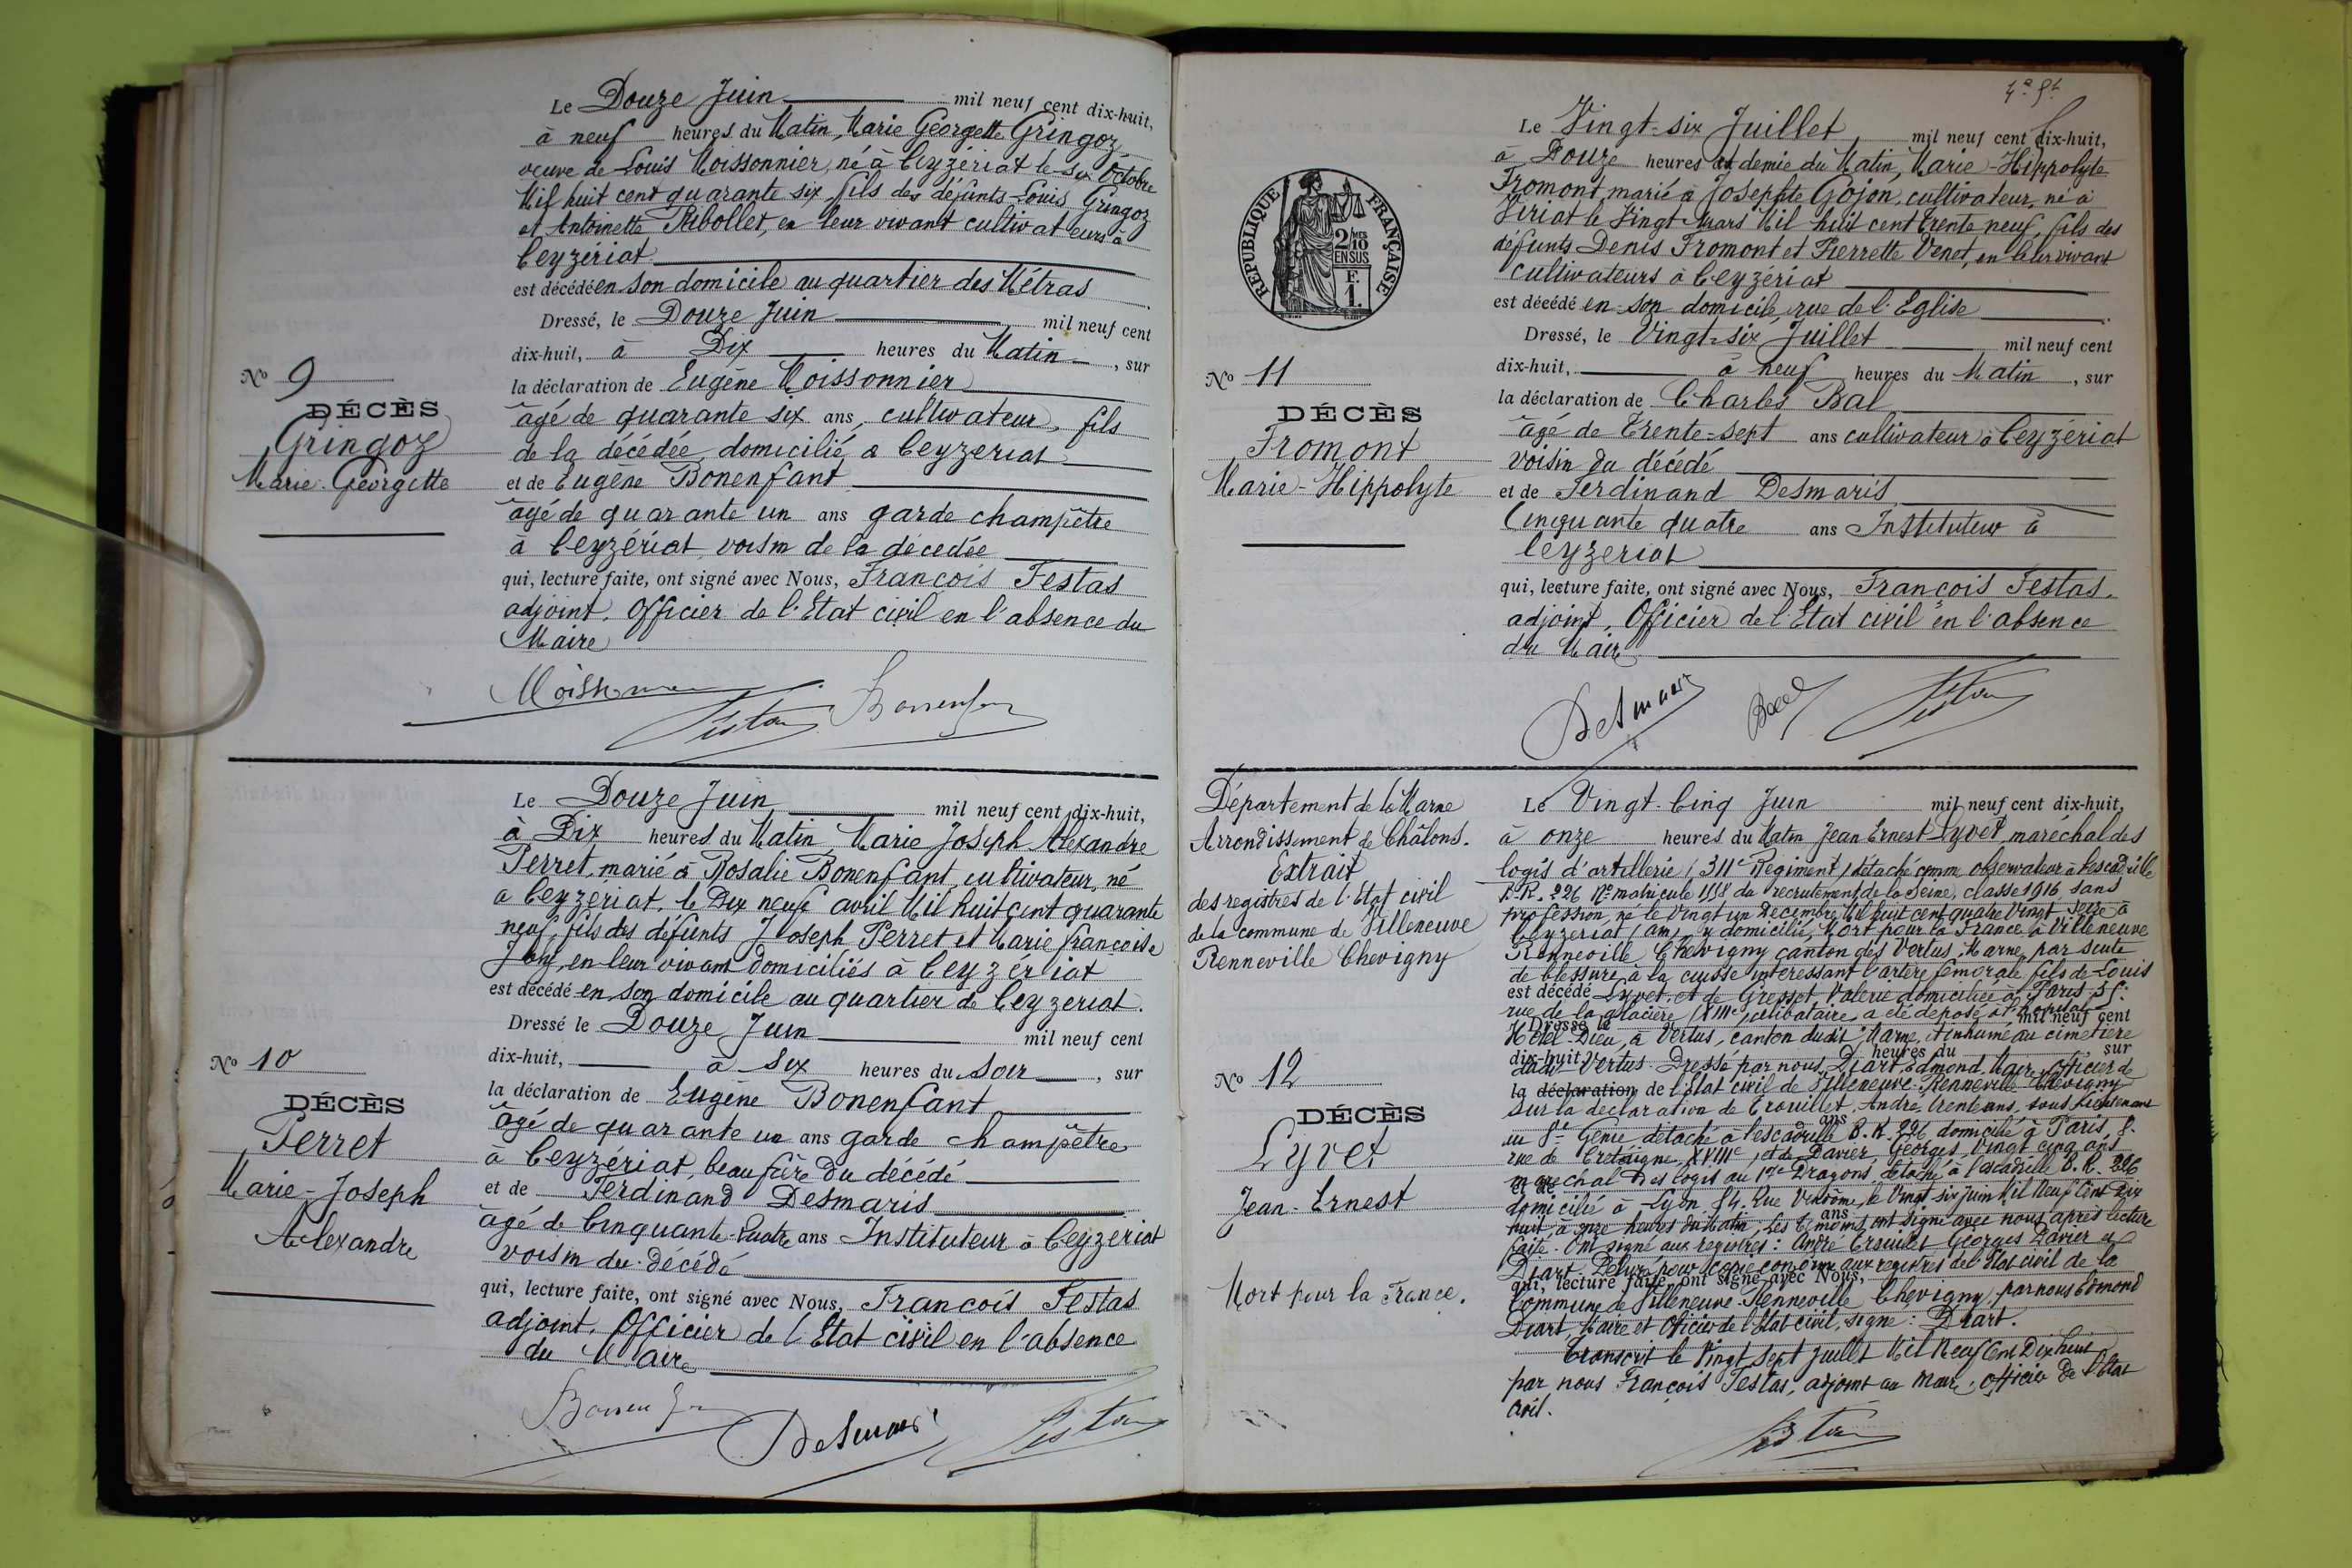 Le Douze Juin mil neuf cent dix-huit,
à neuf heures du Matin, Marie Georgette Gringoz
veuve de Louis Moissonnier, né à Ceyzériat le six Octobre
Mil huit cent quarante six fils des défunts Louis Gringoz
et Antoinette Ribollet, en leur vivant cultivateurs à
Ceyzériat
est décédé en son domicile au quartier des Métras
Dressé, le Douze Juin mil neuf cent
dix-huit, à Dix heures du Matin, sur
la déclaration de Eugène Moissonnier
âgé de quarante six ans, cultivateur, fils
de la décédée, domicilié a Ceyzeriat
et de Eugène Bonenfant
âgé de quarante un ans garde champêtre
à Ceyzériat, voisin de la décedée
qui, lecture faite, ont signé avec Nous, François Festas
adjoint, Officier de l'Etat civil en l'absence du
Maire
No 9
DÉCÈS
Gringoz
Marie-Georgette
Le Douze Juin mil neuf cent dix-huit,
à Dix heures du Matin, Marie Joseph Alexandre
Perret, marié à Rosalie Bonenfant, cultivateur, né
a Ceyzériat, le Dix neuf avril Mil huit cent quarante
neuf, fils des défunts Joseph Perret et Marie françoise
en leur vivant domiciliés à Ceyzériat
est décédé en son domicile au quartier de Ceyzeriat.
Dressé le Douze Juin mil neuf cent
dix-huit, à six heures du soir, sur
la déclaration de Eugène Bonenfant
âgé de quarante un ans garde champêtre
à Ceyzériat, beau frère du décédé
et de Ferdinand Desmaris
âgé de Cinquante-quatre ans Instituteur à Ceyzériat
voisin du décédé
qui, lecture faite, ont signé avec Nous, François Festas
adjoint, Officier de l'Etat civil en l'absence
du Maire
No 10
DÉCÈS
Perret
Marie-Joseph
Alexandre
Le Vingt-six Juillet mil neuf cent dix-huit,
à Douze heures et demie du Matin, Marie-Hippolyte
Fromont, marié à Josephte Gojon, cultivateur, né à
Viriat le Vingt Mars Mil huit cent trente neuf, fils des
défunts Denis Fromont et Pierrette Venet, en leur vivant
cultivateurs à Ceyzériat
est décédé en son domicile, rue de l'Eglise
Dressé, le Vingt-six Juillet mil neuf cent
dix-huit, à neuf heures du Matin, sur
la déclaration de Charles Bal
âgé de Trente-sept ans cultivateur à Ceyzériat
voisin du décédé
et de Ferdinand Desmaris
Cinquante quatre ans Instituteur à
Ceyzeriat
qui, lecture faite, ont signé avec Nous, François Festas,
adjoint, Officier de l'Etat civil en l'absence
du Maire
RÉPUBLIQUE FRANÇAISE
2/10
EN SUS
F.
1.
No 11
DÉCÈS
Fromont
Marie-Hippolyte
Département de la Marne
Arrondissement de Châlons.
Extrait
des registres de l'Etat civil
de la commune de Villeneuve
Renneville Chevigny
Le Vingt-Cinq Juin mil neuf cent dix-huit,
à onze heures du Matin Jean Ernest Lyvet, maréchal des
logis d'artillerie (311e Regiment) détaché comme observateur à l'escadrille
B.R. 226 No matricule 1158 du recrutement de la Seine, classe 1916 sans
profession, né le Vingt un Decembre Mil huit cent quatre Vingt seize à
Ceyzeriat (Ain) y domicilié, Mort pour la France à Villeneuve
Renneville Chevigny canton des Vertus, Marne, par suite
de blessure à la cuisse interessant l'artère fémorale fils de Louis
est décédé Lyvet, et de Gresset, Valerie domiciliée à Paris
rue de la glacière (XIIIe) célibataire, a été déposé à l'hopital
Dressé le mil neuf cent
Hotel-Dieu, à Vertus, canton dudit Marne, inhumé au cimetière
dix-huit heures du sur
dudit Vertus. Dressé par nous Diart Edmond, Maire, officier de
la déclaration de l'Etat civil de Villeneuve-Renneville Chevigny
sur la declaration de Trouillet, André, trente ans, sous lieutenant
au Génie, détaché à l'escadrille B.R. 226 domicilié à Paris
rue de Cretaigne, XVIIIe, et de Davier, Georges, Vingt cinq ans
marechal des logis au Dragons, détaché à l'escadrille B.R. 226
domicilié à Lyon 54, Rue Vendôme, le Vingt six juin Mil neuf Cent Dix
huit à onze heures du Matin, Les témoins, ont signé avec nous après lecture
faite. Ont signé aux registres: André Trouillet Georges Davier et
Diart. Delivré pour copie conforme aux registres de l'Etat civil de la
qui, lecture faite, ont signé avec Nous,
Commune de Villeneuve-Renneville Chevigny, par nous Edmond
Diart, Maire et Officier de l'Etat civil, signé: Diart.
Transcrit le Vingt sept juillet Mil Neuf Cent Dix huit
par nous François Festas, adjoint au Maire, officier de l'Etat
civil.
No 12
DÉCÈS
Lyvet
Jean-Ernest
Mort pour la France.